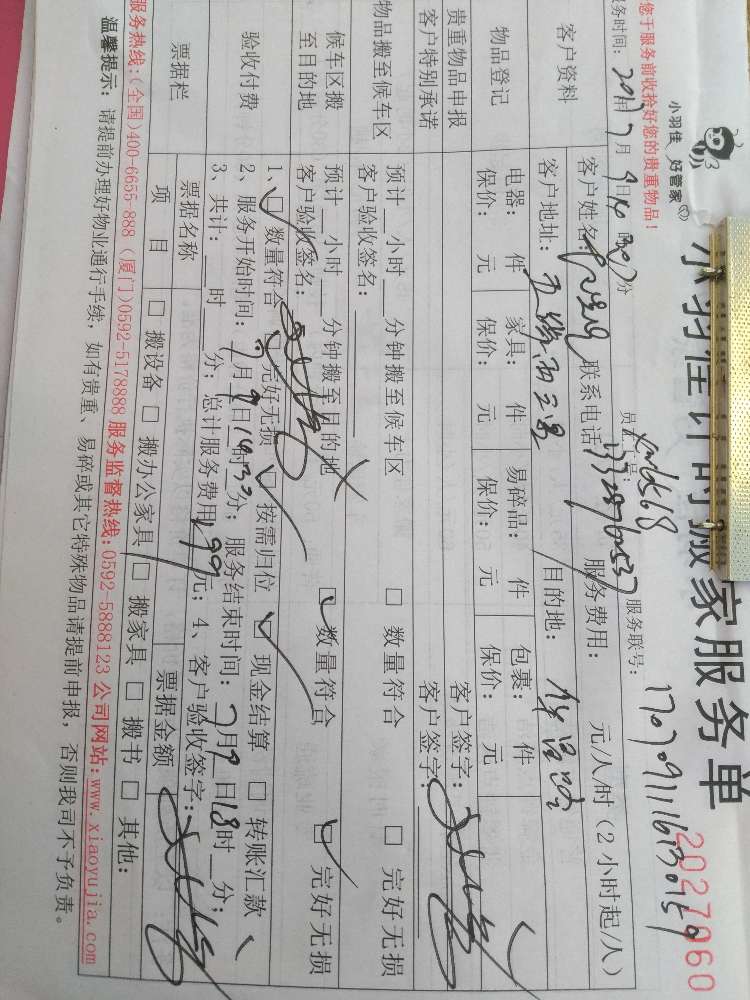 小羽佳 好管家
小羽佳计时搬家服务单
2027960
您于服务前收拾好您的贵重物品!
服务时间: 2017年7月9日14时30分 员工工号: xmd568 服务联号:
客户资料 客户姓名: 联系电话: 服务费用: 元/人/时(2小时起/人)
客户地址: 目的地:
物品登记 电器: 件 家具: 件 易碎品: 件 包裹: 件
保价: 元 保价: 元 保价: 元 保价: 元
贵重物品申报 客户签字:
客户特别承诺 客户签字:
物品搬至候车区 预计__小时__分钟搬至候车区 □ 数量符合 □ 完好无损
客户验收签名:
候车区搬至目的地 预计__小时__分钟搬至目的地 □ 数量符合 □ 完好无损
客户验收签名:
验收付费 1、□ 数量符合 □ 完好无损 □ 按需归位 □ 现金结算 □ 转账汇款
2、服务开始时间: 7月9日14时30分; 服务结束时间: 7月9日18时__分;
3、共计: __时__分; 总计服务费用199元; 4、客户验收签字:
票据栏 票据名称 票据金额
项目 □ 搬设备 □ 搬办公家具 □ 搬家具 □ 搬书 □ 其他:
服务热线:(全国)400-6655-888 (厦门)0592-5178888 服务监督热线:0592-5888123 公司网站:www.xiaoyujia.com
温馨提示: 请提前办理好物业通行手续, 如有贵重、易碎或其它特殊物品请提前申报, 否则我司不予负责。